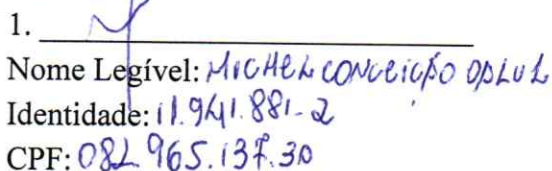 1.
Nome Legível: MICHEL CONCEIÇÃO
Identidade: 11.941.881-2
CPF: 082 965.137.30